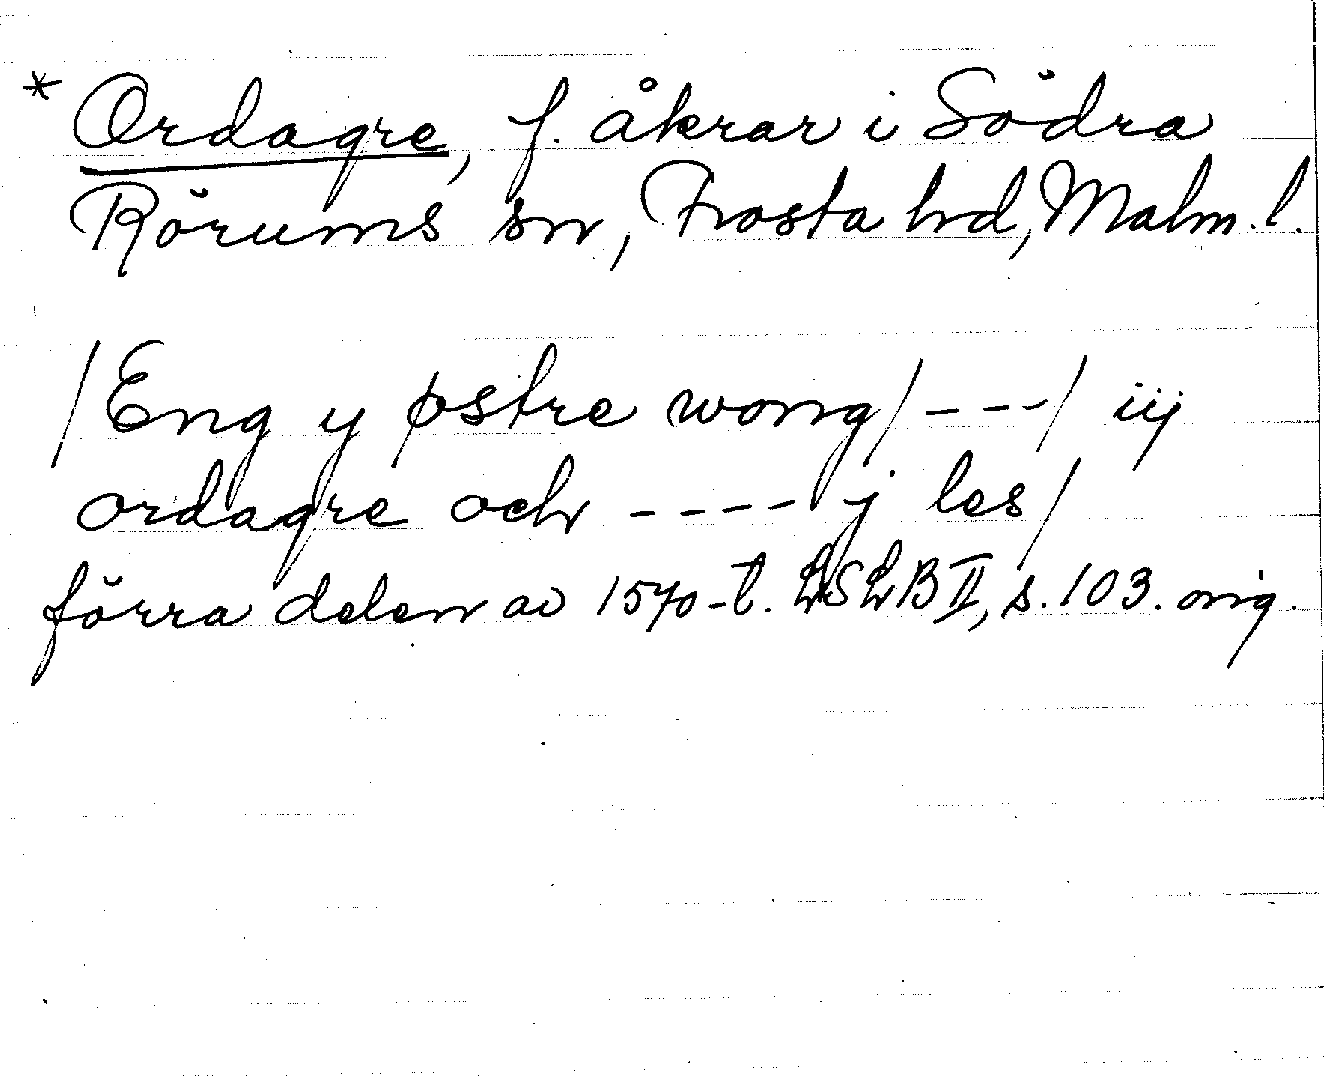 * Ordagre, f. åkrar i Södra
Rörums sn, Frosta hd, Malm. l.
/Eng y østre wong/ --- / iij
ordagre och ---- j les/
förra delen av 1570-t. LSLB II, s. 103. orig.